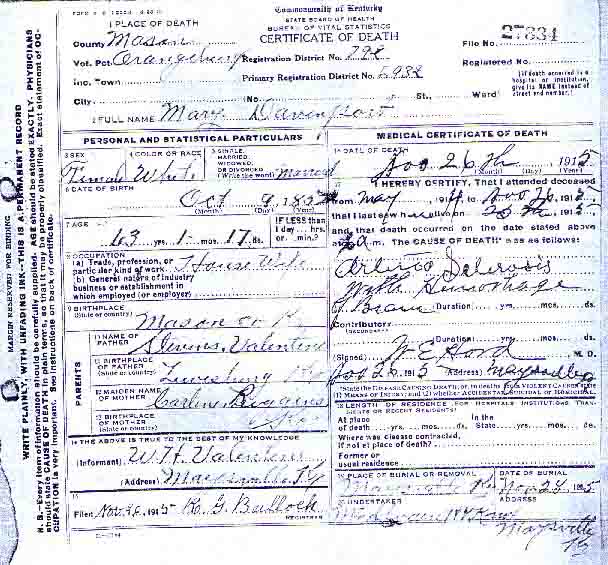 Commonwealth of Kentucky
STATE BOARD OF HEALTH
BUREAU OF VITAL STATISTICS
CERTIFICATE OF DEATH
1 PLACE OF DEATH
County Mason
Vot. Pct. Orangeburg Registration District No. 798
File No. 27834
Inc. Town Primary Registration District No. 5932
Registered No.
City (No. St., Ward)
[If death occurred in a hospital or institution, give its NAME instead of street and number.]
2 FULL NAME Mary Davenport
PERSONAL AND STATISTICAL PARTICULARS
3 SEX Female
4 COLOR OR RACE White
5 SINGLE, MARRIED, WIDOWED, OR DIVORCED (Write the word) Married
6 DATE OF BIRTH
Oct 9, 1852
(Month) (Day) (Year)
7 AGE
63 yrs. 1 mos. 17 ds.
IF LESS than 1 day... hrs. or... min.?
8 OCCUPATION
(a) Trade, profession, or particular kind of work House Wife
(b) General nature of industry business or establishment in which employed (or employer)
9 BIRTHPLACE
(State or country) Mason Co Ky
PARENTS
10 NAME OF FATHER Valentine
11 BIRTHPLACE OF FATHER
(State or country) Lewisburg Ky
12 MAIDEN NAME OF MOTHER
13 BIRTHPLACE OF MOTHER
(State or country) Ky
14 THE ABOVE IS TRUE TO THE BEST OF MY KNOWLEDGE
(Informant) W.H. Valentine
(Address) Maysville Ky
15
Filed Nov 26, 1915 R. G. Bullock
REGISTRAR
MEDICAL CERTIFICATE OF DEATH
16 DATE OF DEATH
Nov 26th, 1915
(Month) (Day) (Year)
17 I HEREBY CERTIFY, That I attended deceased
from May to Nov 26, 1915
that I last saw h alive on 1915
and that death occurred on the date stated above
at m. The CAUSE OF DEATH* was as follows:
Arterio Sclerosis
With Hemorrhage
Brain (Duration) yrs. mos. ds.
Contributory
(SECONDARY)
(Duration) yrs. mos. ds.
(Signed) M. D.
Nov 26, 1915 (Address)
*State the DISEASE CAUSING DEATH, or, in deaths from VIOLENT CAUSES, state (1) MEANS OF INJURY; and (2) whether ACCIDENTAL, SUICIDAL or HOMICIDAL.
18 LENGTH OF RESIDENCE (FOR HOSPITALS, INSTITUTIONS, TRANSIENTS OR RECENT RESIDENTS)
At place of death yrs. mos. ds.
In the State yrs. mos. ds.
Where was disease contracted, if not at place of death?
Former or usual residence
19 PLACE OF BURIAL OR REMOVAL
DATE OF BURIAL
Nov 28, 1915
20 UNDERTAKER
ADDRESS
Maysville Ky
MARGIN RESERVED FOR BINDING
WRITE PLAINLY, WITH UNFADING INK—THIS IS A PERMANENT RECORD
N. B.—Every item of information should be carefully supplied. AGE should be stated EXACTLY. PHYSICIANS should state CAUSE OF DEATH in plain terms, so that it may be properly classified. Exact statement of OCCUPATION is very important. See instructions on back of certificate.